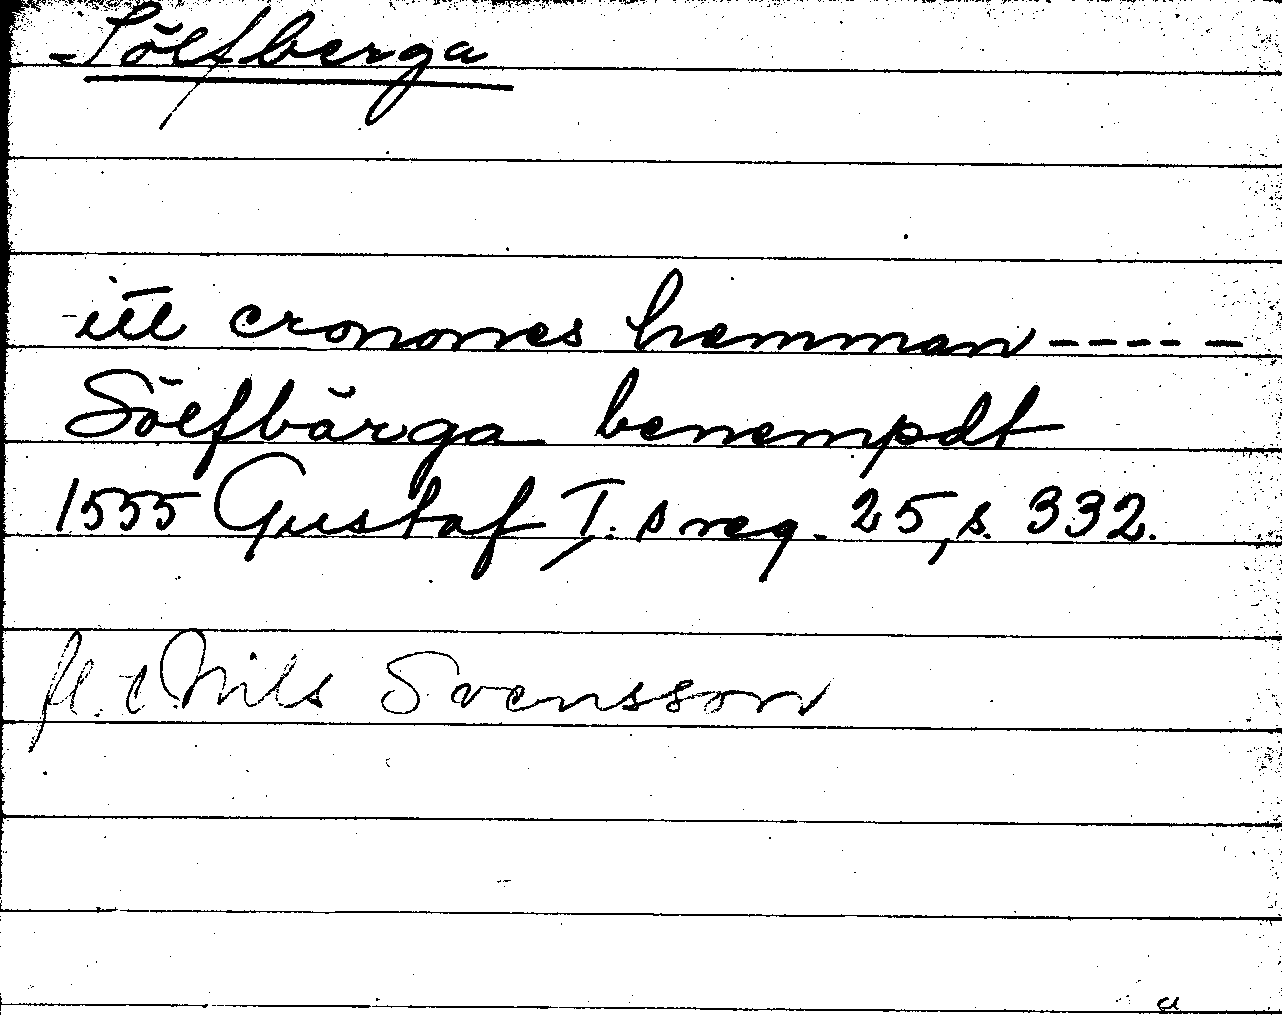 Sölfberga
itt cronones hemman - - - - -
Sölfbärga benempdt
1555 Gustaf I:s reg. 25, s. 332.
Nils Svensson
a